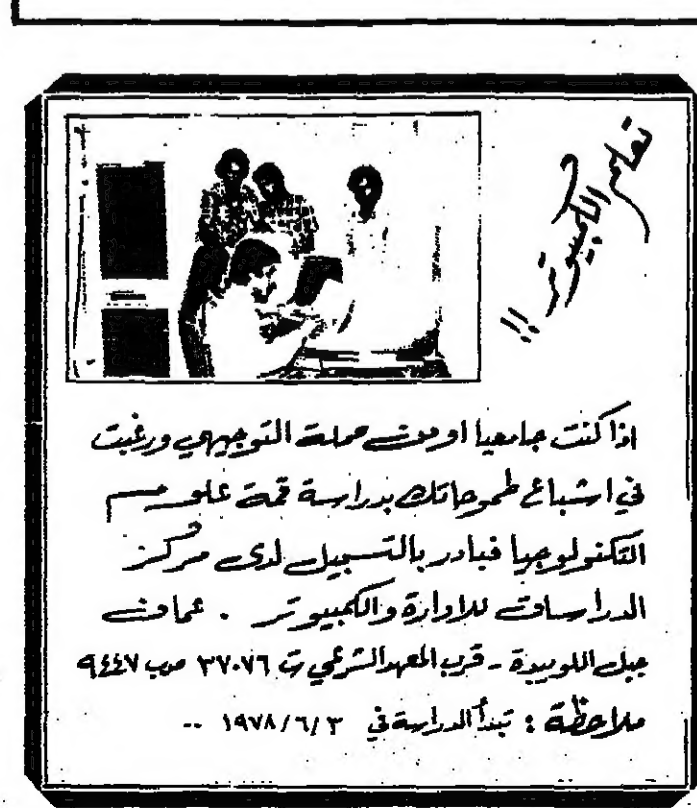 تعلم الكمبيوتر !!
اذا كنت جامعيا او من حملة التوجيهي ورغبت
في اشباع طموحاتك بدراسة قمة علوم
التكنولوجيا فبادر بالتسجيل لدى مركز
الدراسات للادارة والكمبيوتر . عمان
جبل اللويبدة - قرب المعهد الشرعي ت ٣٧٠٧٦ ص ب ٩٤٤٧
ملاحظة : تبدأ الدراسة في ١٩٧٨/٦/٣ --